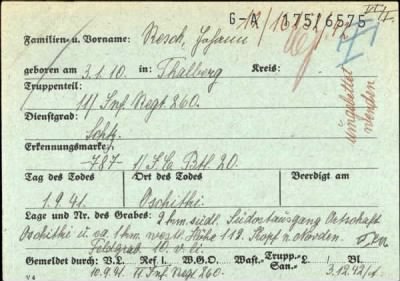 G-A 175/6575
Familien- u. Vorname: Resch, Johann
geboren am 3.1.10 in: Thalberg Kreis:
Truppenteil:
11/ Inf. Regt. 260.
Dienstgrad:
Schtz.
Erkennungsmarke:
-787- 1/ I.E. Btl. 20.
Tag des Todes Ort des Todes Beerdigt am
1.9.41. Oschitki
Lage und Nr. des Grabes: 2 km südl. Südostausgang Ortschaft
Oschitki u. ca 1 km westl. Höhe 112. Kopf n. Norden.
Feldgrab 10. v. li.
Gemeldet durch: V.L. Ref. I. W.G.O. Wast.- Trupp.- San.- L. Bl.
10.9.41. Inf. Regt. 260. 3.12.42
umgebettet
worden
V 4